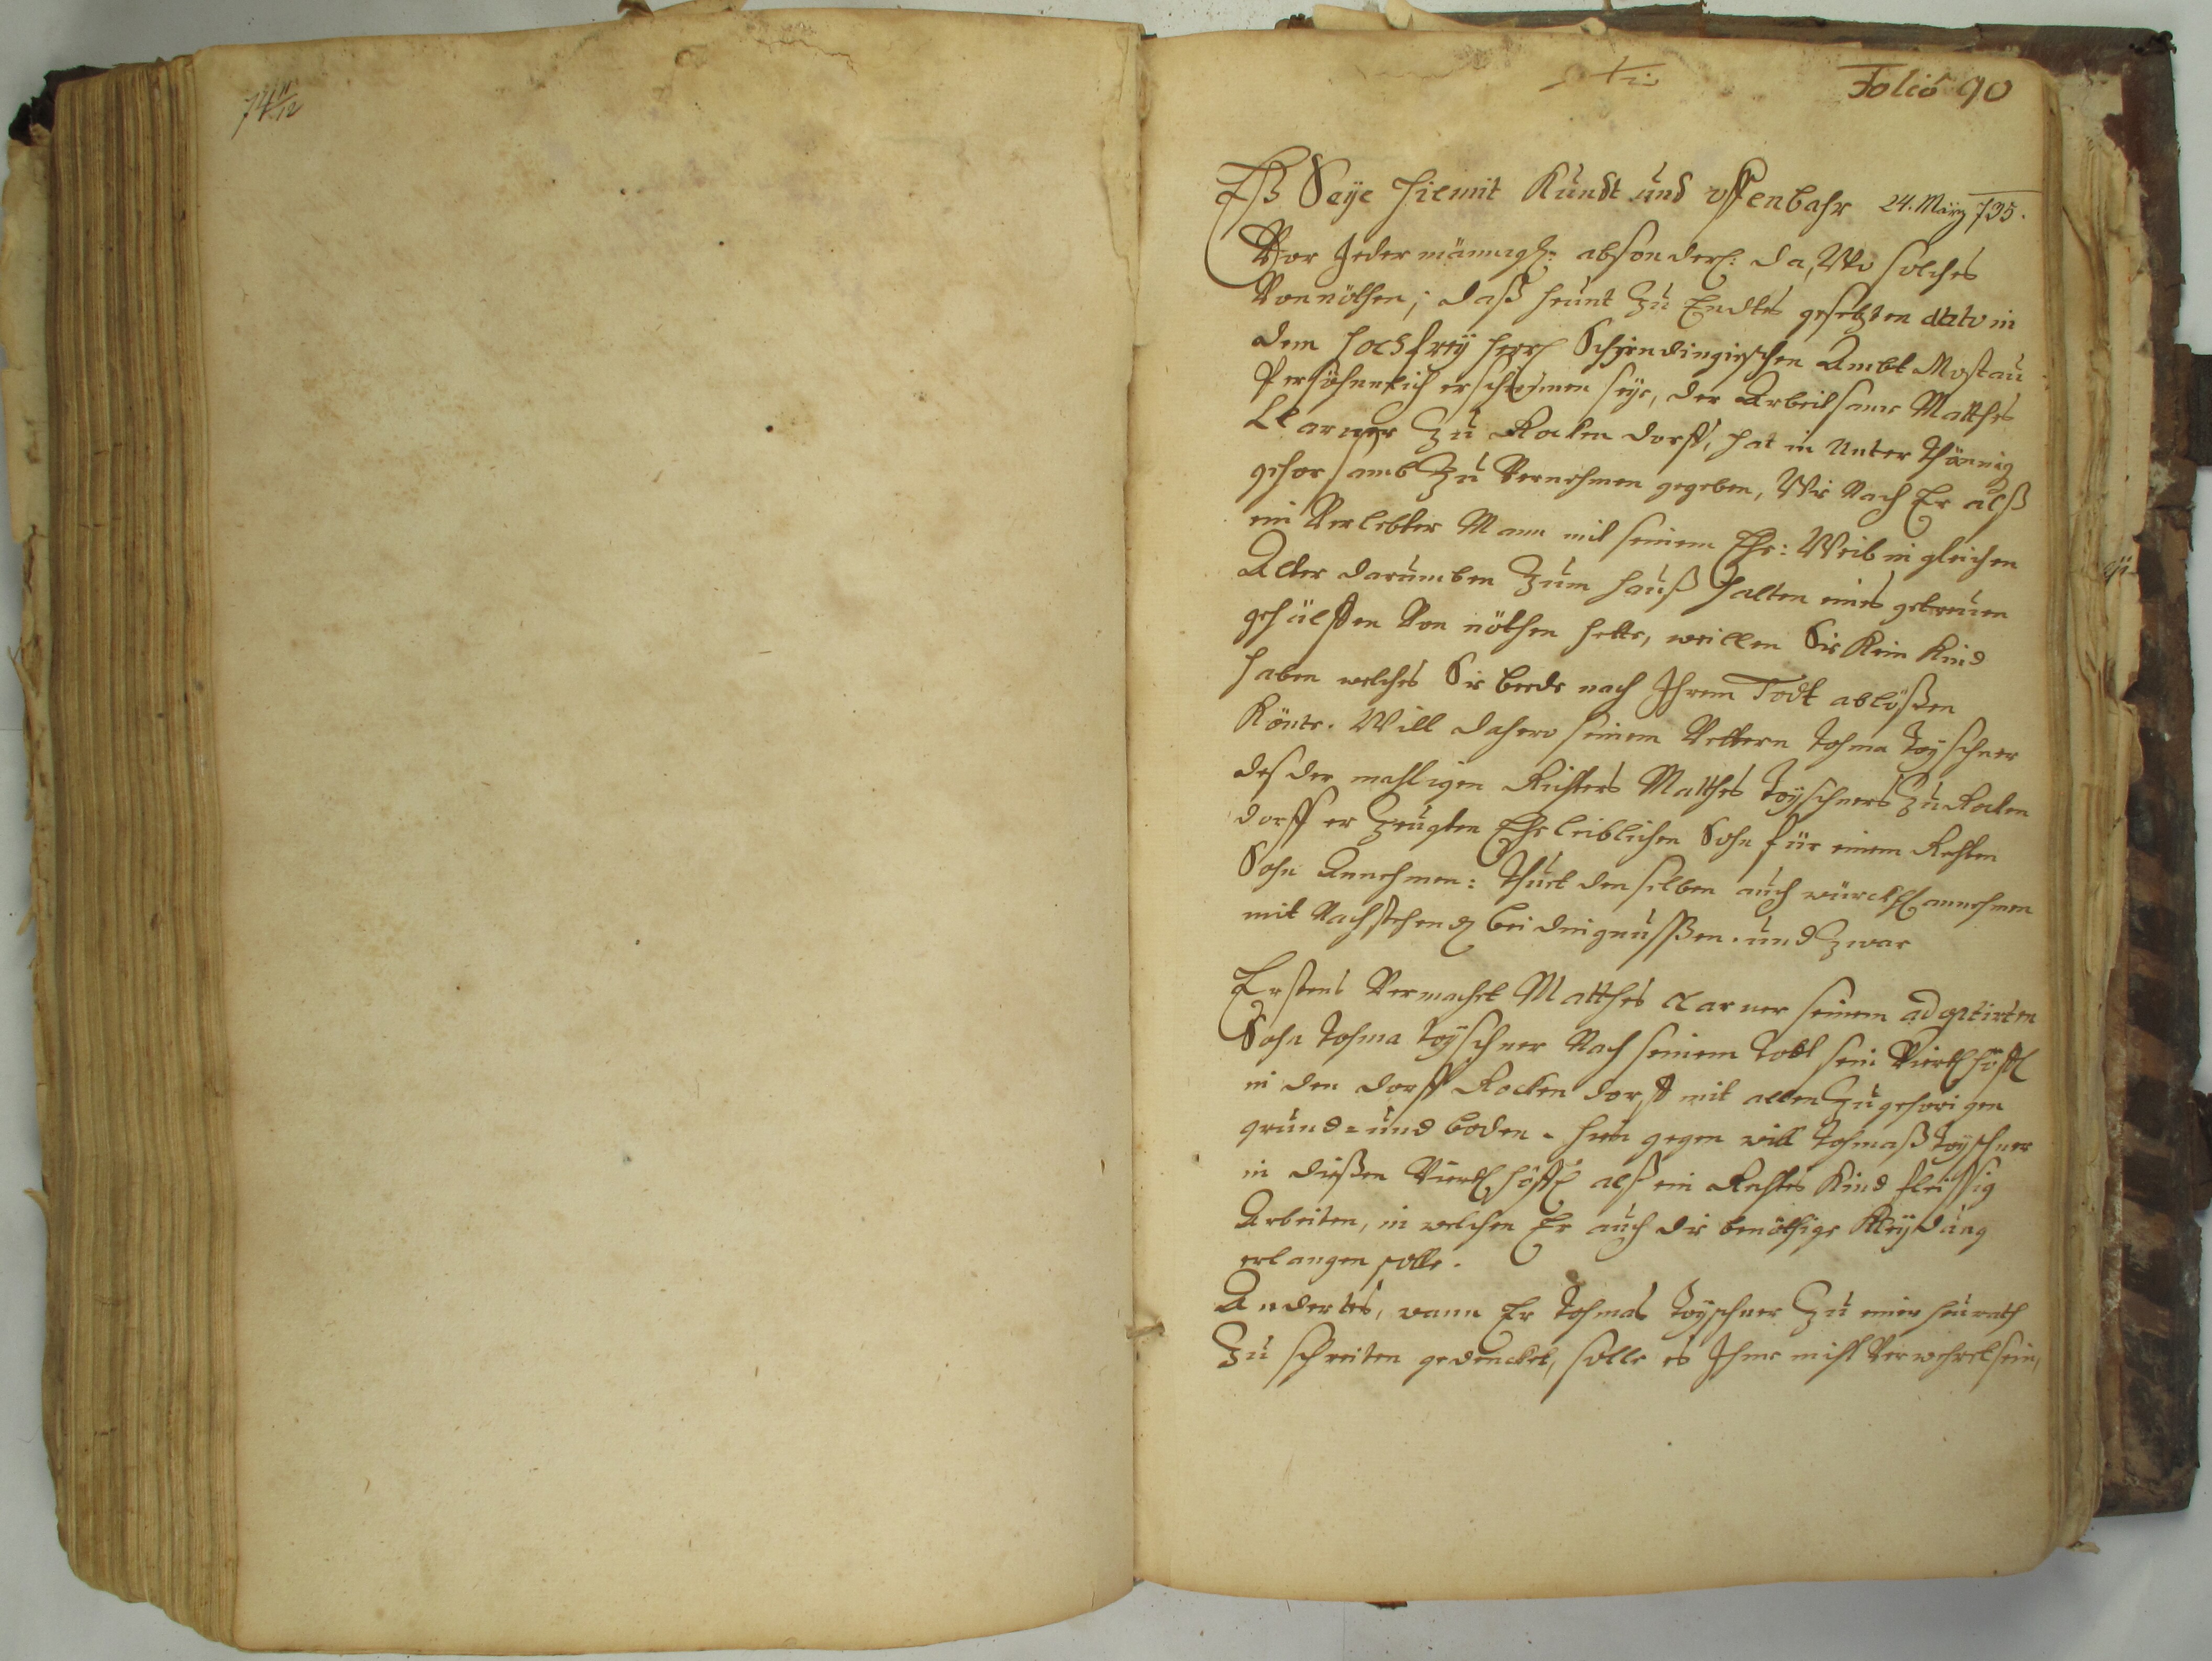 Folio 90
Eß Seye hiemit Kundt und offenbahr 24. Märtz 735.
Vor Jedermännigl: absonderl: da, Wo solches
Vonnöthen, daß heunt zu Endtes gesetzten dato in
dem Hochfreyherrl Schirndingischen Ambt Mostau
Persöhnlich erschienen seye, der Arbeitsame Matthes
zu Rockendorff, hat in Unterthännig
gehorsamb zu Vernehmen gegeben, Wie Nach Er alß
ein Verlebter Mann mit seinem Ehe: Weib in gleichen
Alter darumben zum Hauß halten eines getreuen
gehülffen Vonnöthen hette, weillen Sie Kein Kind
haben welches Sie beede nach Ihrem Todt ablößen
Könte. Will dahero seinem Vettern Tohma Toyschner
des dermahligen Richters Matthes Toyschners zu Rocken
dorff erzeugten Eheleiblichen Sohn für einem Rechten
Sohn Annehmen: Thuet denselben auch würckl annehmen
mit Nachstehend beidingnussen. und zwar
Erstens Vermacht Matthes seinem adoptirten
Sohn Tohma Toyschner Nach seinem Todt sein Viertlhöffl
in den dorff Rockendorff mit allen zugehörigen
grund- und boden. hin gegen will Tohmaß Toyschner
in dießen Viertlhöffl alß ein Rechtes Kind fleissig
Arbeiten, in welchen Er auch die benöthige Kleydung
erlangen solle.
Andertes, wann Er Tohmas Toyschner zu einer heurath
zu schreiten gedencket, solle es Ihme nicht Verwehrt sein,